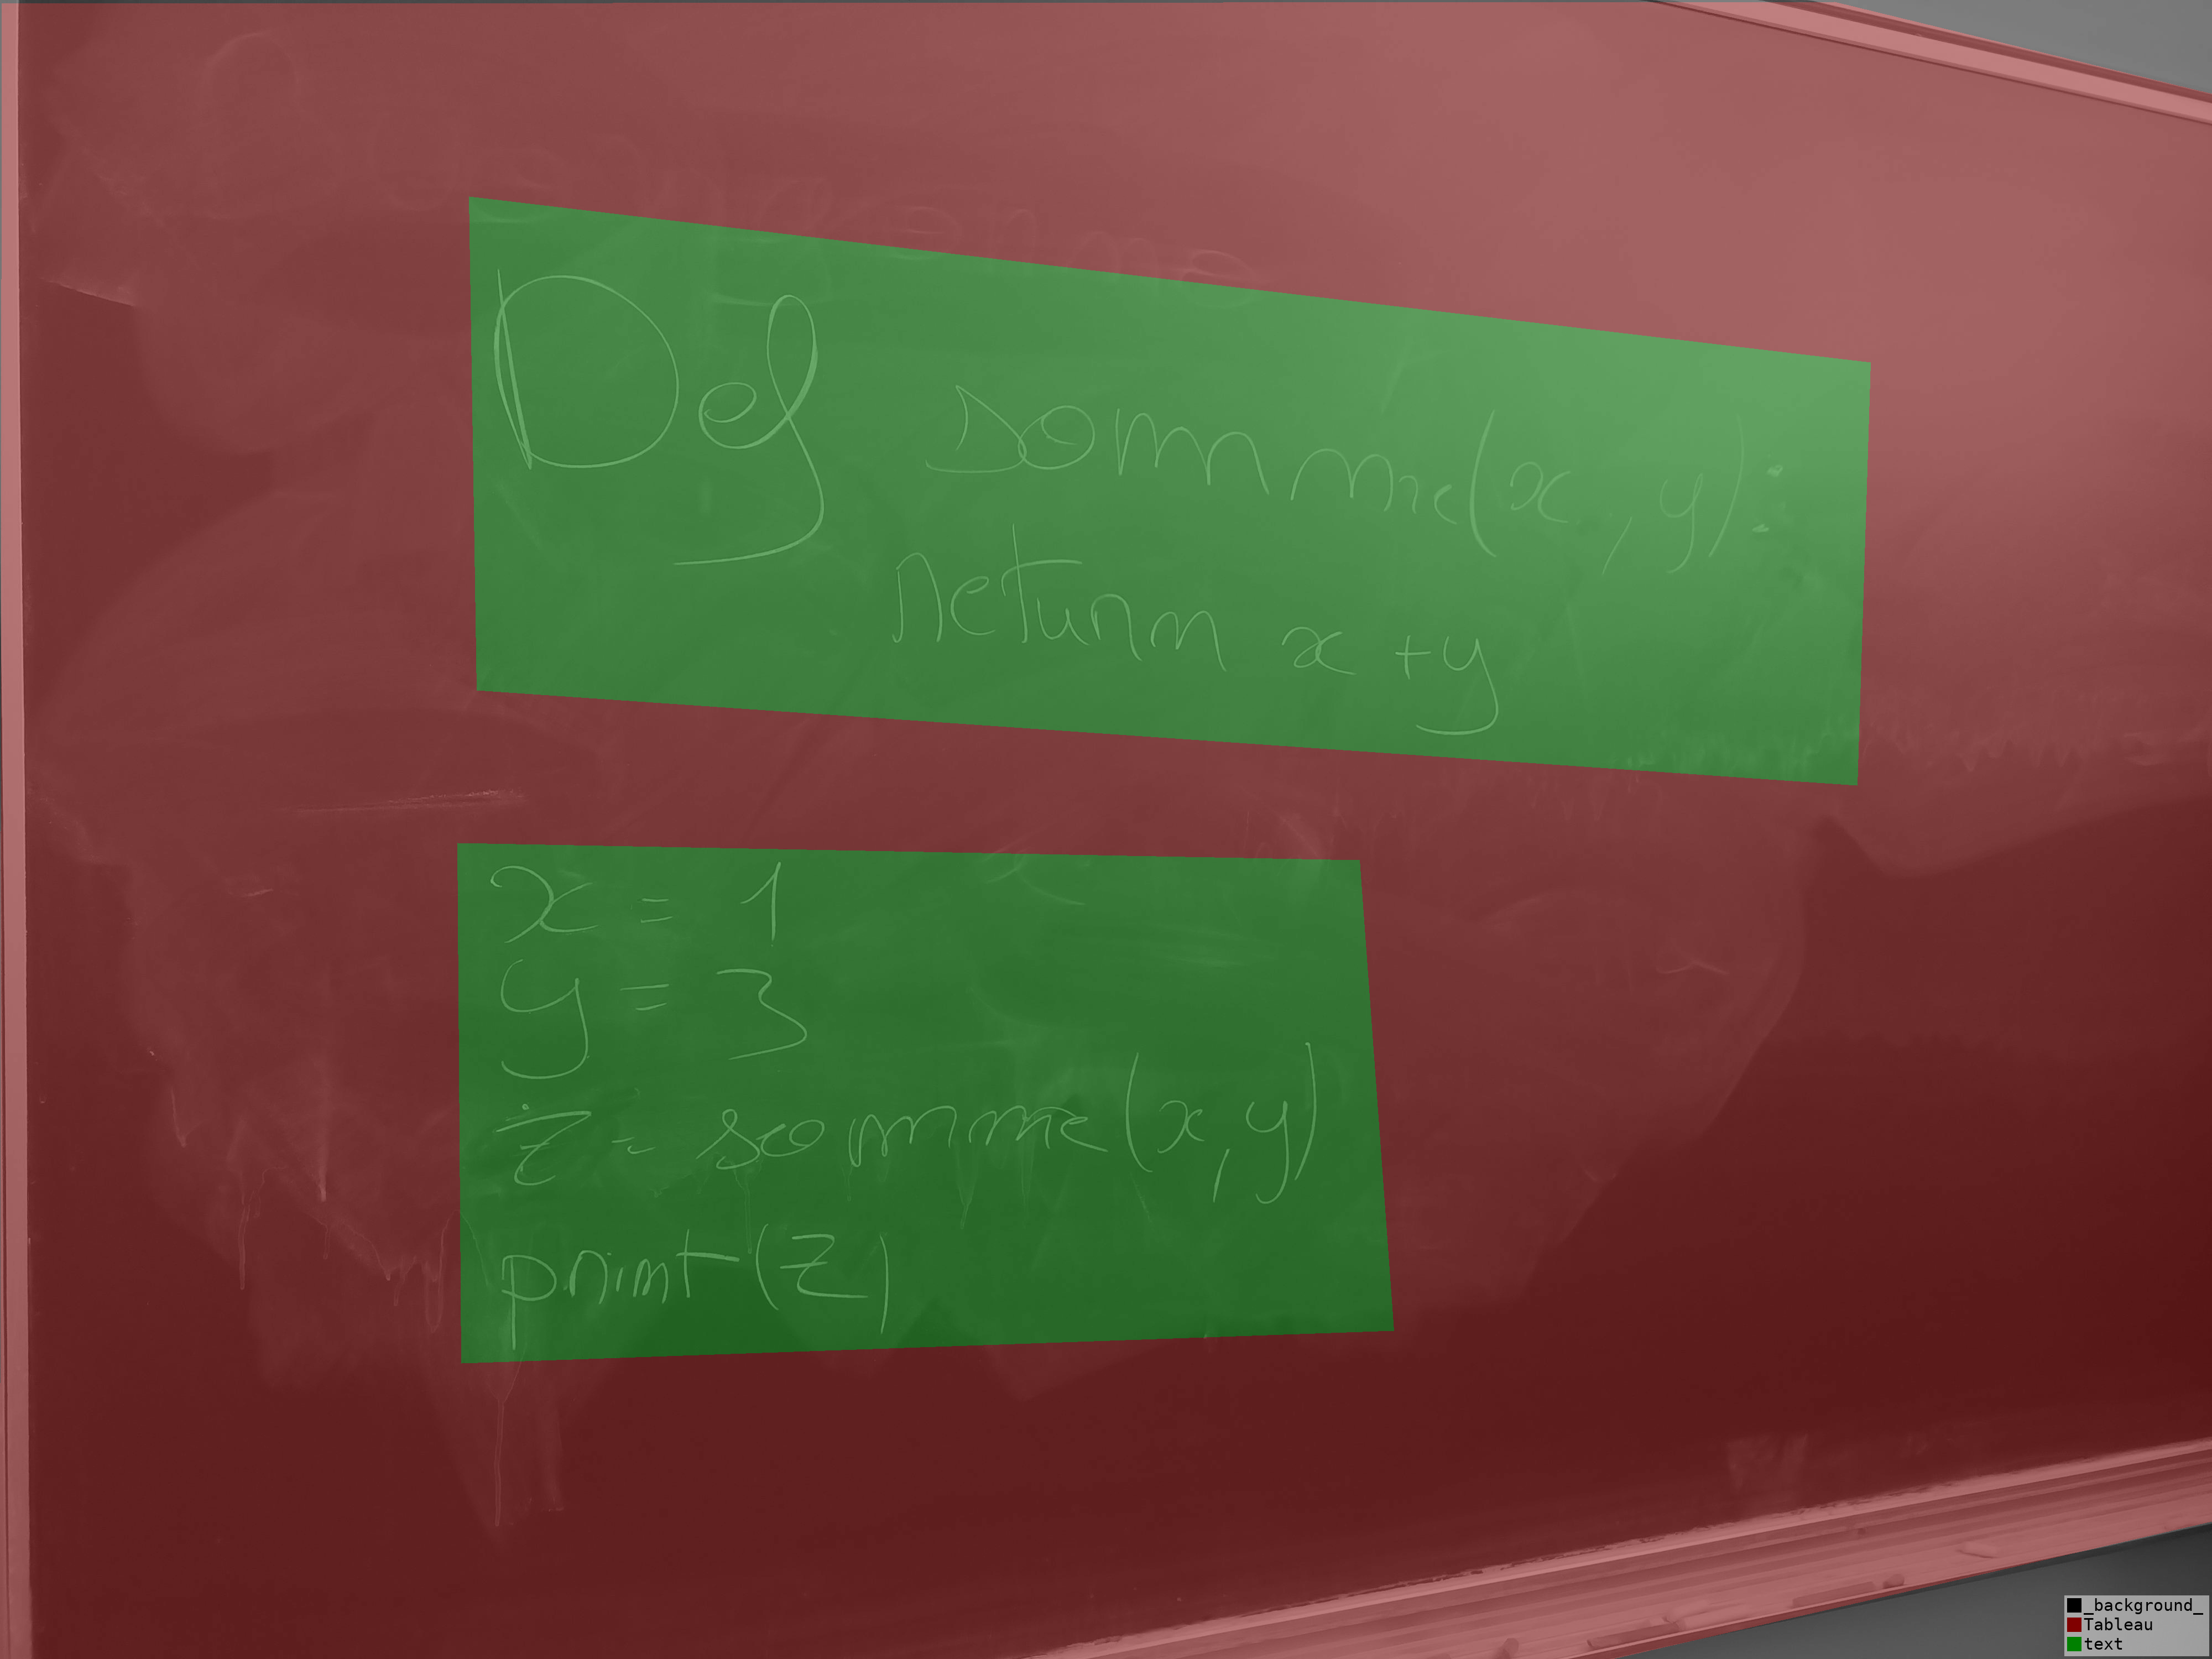 Def somme(x, y):
return x + y
x = 1
y = 3
z = somme(x, y)
print(z)
_background_
Tableau
text